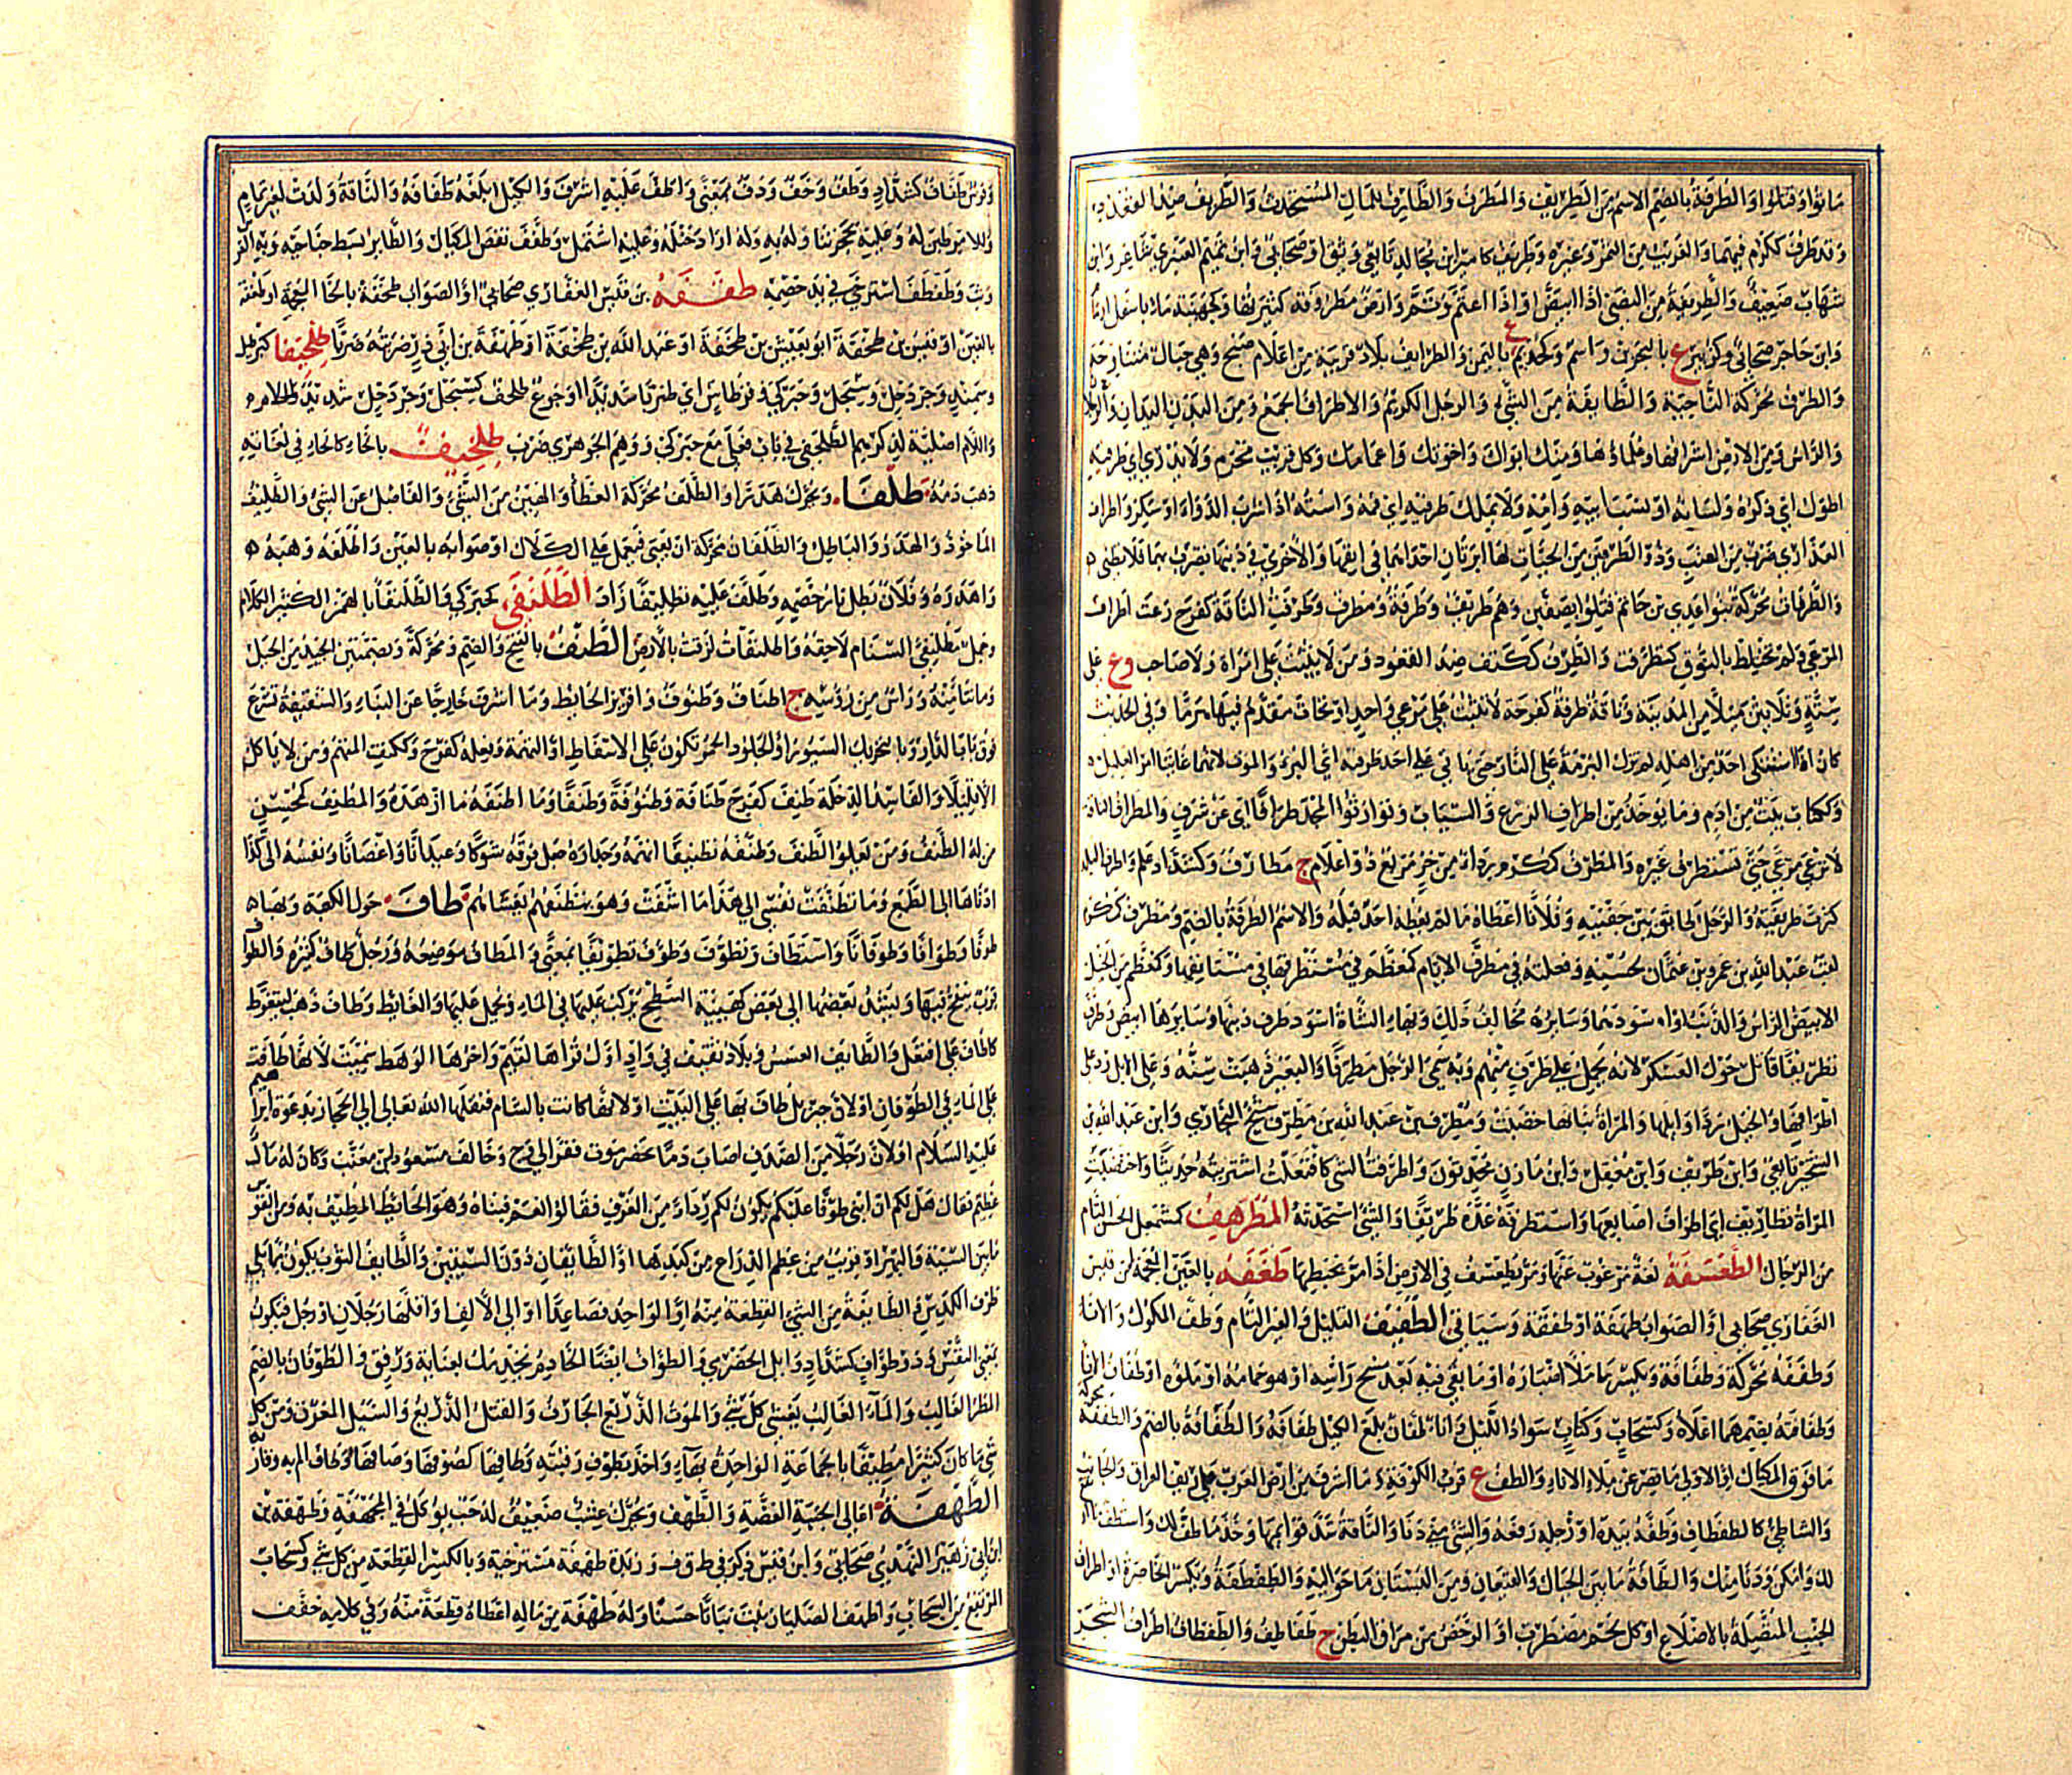 ماتوا او قتلوا والطرفة بالضم الاسم من الطريف والمطرف والطارف للمال المستحدث والطريف ضد القعدد
وقد طرف ككرم فيهما والغريب من الثمر وغيره وطريف كامير ابن مجالد تابعي وثق او صحابي وابن تميم العنبري شاعر وابن
شهاب ضعيف والطريفة من النصي اذا ابيض او اذا اعتم وتم وارض مطروفة كثيرتها وكجهينة ماء باسفل ارمام
وابن حاجر صحابي وكزبير ع بالبحرين واسم وكحذيم ع باليمن والطرايف بلاد قريبة من اعلام صبح وهي جبال متناوحة
والطرف محركة الناحية والطايفة من الشي والرجل الكريم والاطراف الجمع ومن البدن اليدان والرجلان
والراس ومن الارض اشرافها وعلماؤها ومنك ابواك واخوتك واعمامك وكل قريب محرم ولا يدري اي طرفيه
اطول اي ذكره ولسانه او نسب ابيه وامه ولا يملك طرفيه اي فمه واسته اذا شرب الدواء او سكر واطراف
العذاري ضرب من العنب وذو الطرفين من الحيات لها ابرتان احداهما في انفها والاخري في ذنبها يضرب بهما فلا يطني
والطرفات محركة بنوا عدي بن حاتم قتلوا بصفين وهم طريف وطرفة ومطرف وطرفت الناقة كفرح رعت اطراف
المرعي ولم تختلط بالنوق كتطرفت والطرف ككتف ضد القعدد ومن لا يثبت علي امراة ولا صاحب وع علي
ستة وثلاثين ميلا من المدينة وناقة طرفة كفرحة لا تثبت علي مرعي واحد او تحات مقدم فيها هرما وفي الحديث
كان اذا اشتكي احد من اهله لم تزل البرمة علي النار حتي ياتي علي احد طرفيه اي البرء والموت لانهما غايتا امر العليل
وككتاب بيت من ادم وما يوخذ من اطراف الزرع والسباب وتوارثوا المجد طرافا اي عن شرف والمطراف الناقة
لا ترعي مرعي حتي تستطرف غيره والمطرف كمكرم رداء من خز مربع ذو اعلام ج مطارف وكشداد علم واطرف البلد
كثرت طريفته والرجل طابق بين جفنيه وفلانا اعطاه ما لم يعطه احد قبله والاسم الطرفة بالضم ومطرف كمكرم
لقب عبد الله بن عمرو بن عثمان لحسنه وفعلته في مطرف الايام كمعظم وفي مستطرفها في مستانفها وكمعظم من الخيل
الابيض الراس والذنب او اسودهما وسايره مخالف ذلك وبهاء الشاة اسود طرف ذنبها وسايرها ابيض وطرف
تطريفا قاتل حول العسكر لانه يحمل علي طرف منهم وبه سمي الرجل مطرفا والبعير ذهبت سنه وعلي الابل رد علي
اطرافها والخيل رد اوايلها والمراة بنانها خضبت ومطرف بن عبد الله بن مطرف شيخ البخاري وابن عبد الله بن
الشخير تابعي وابن طريف وابن معقل وابن مازن محدثون واطرفت الشي كافتعلت اشتريته حديثا واختضبت
المراة تطاريف اي اطراف اصابعها واستطرفه عده طريفا والشي استحدثه المطرهف كمشمعل الحسن التام
من الرجال الطعسفة لغة مرغوب عنها ومر يطعسف في الارض اذا مر يخبطها طغفة بالغين المعجمة ابن قيس
الغفاري صحابي او الصواب طهفة او طقفة وسياتي الطفيف القليل والغير التام وطف المكوك والاناء
وطففه محركة وطفافه ويكسر ما ملا اصباره او ما بقي فيه بعد مسح راسه او هو جمامه او ملؤه او طفاف الاناء
وطفافته بضمهما اعلاه وكسحاب وكتاب سواد الليل واناء طفان بلغ الكيل طفافه والطفافة بالضم والطففة محركة
ما فوق المكيال او الاولي ما قصر عن ملاء الاناء والطف ع قرب الكوفة وما اشرف من ارض العرب علي ريف العراق والجانب
والشاطي كالطفطاف وطفه بيده او برجله رفعه والشي منه دنا والناقة شد قوايمها وخذ ما طف لك واستطف
لك وامكن ودنا منك والطافة ما بين الجبال والقيعان ومن البستان ما حواليه والطفطفة وتكسر الخاصرة او اطراف
الجنب المتصلة بالاضلاع او كل لحم مضطرب او الرخص من مراق البطن ج طفاطف والطفطاف اطراف الشجر
وفرس طفاف كشداد وطف وخف ودف بمعني واطف عليه اشرف والكيل ابلغه طفافه والناقة ولدت لغير تمام
وللامر طبن له وعليه بحجر تناوله به وله اراد ختله وعليه اشتمل وطفف نقص المكيال والطاير بسط جناحيه وبه الفرس
وثب وطفطف استرخي في يد خصمه طقفة بن قيس الغفاري صحابي او الصواب طخفة بالخاء المعجمة او طغفة
بالغين او قيس بن طخفة ابو يعيش بن طخفة او عبد الله بن طخفة او طهفة بن ابي ذر ضربته ضربا طلحيفا كبرطيل
وسمند وجردحل وسبحل وحبركي وقرطاس اي ضربا شديدا وجوع طلحف كسبحل وجردحل شديد ولامه
واللام اصلية لذكرهم الطلحفي في باب فعلي مع حبركي ووهم الجوهري ضرب طلخيف بالخاء كالحاء في لغاته
ذهب دمه طلفا ويحرك هدرا والطلف محركة العطاء والهين من الشيء والفاضل عن الشي والطليف
الماخوذ والهدر والباطل والطلفان محركة ان تعيي فتعمل علي الكلال او صوابه بالغين واطلفه وهبه
واهدره وفلان بطل ثار خصمه وطلف عليه تطليفا زاد الطلنفي كحبركي والطلنفا بالهمز الكثير الكلام
وجمل مطلنفئ السنام لاصقه واطلنفات لزقت بالارض الطنف بالفتح والضم ومحركة وبضمتين الحيد من الجبل
وما نتا منه وراس من رؤسه ج اطناف وطنوف وافريز الحايط وما اشرف خارجا عن البناء والسقيفة تشرع
فوق باب الدار وبالتحريك السيور او الجلود الحمر تكون علي الاسفاط او التهمة وفعله كفرح وككتف المتهم ومن لا ياكل
الا قليلا والفاسد الدخلة طنف كفرح طنافة وطنوفة وطنفا وما اطنفه ما ازهده والمطنف كمحسن
من له الطنف ومن يعلوا الطنف وطنفه تطنيفا اتهمه وجداره جعل فوقه شوكا وعيدانا واغصانا ونفسه الي كذا
ادناها الي الطمع وما تطنفت نفسي الي هذا ما اشفت وهو يتطنفهم يغشاهم طاف حول الكعبة وبها
طوفا وطوافا وطوفانا واستطاف وتطوف وطوف تطويفا بمعني والمطاف موضعه ورجل طاف كثيره والطوف
قرب ينفخ فيها ويشد بعضها الي بعض كهيئة السطح يركب عليها في الماء ويحمل عليها والغايط وطاف ذهب ليتغوط
كاطاف علي افتعل والطايف العسس وبلاد ثقيف في واد اول قراها لقيم واخرها الوهط سميت لانها طافت
علي الماء في الطوفان او لان جبريل طاف بها علي البيت او لانها كانت بالشام فنقلها الله تعالي الي الحجاز بدعوة ابراهيم
عليه السلام او لان رجلا من الصدف اصاب دما بحضرموت ففر الي وج وخالف مسعود بن معتب وكان له مال
عظيم فقال هل لكم ان ابني طوفا عليكم يكون لكم رداء من العرب فقالوا نعم فبناه وهو الحايط المطيف به ومن القوس
ما بين السية والابهر او قريب من عظم الذراع من كبدها او الطايفان دون السيتين والطايف الثور يكون مما يلي
طرف الكدس والطايفة من الشيء القطعة منه او الواحد فصاعدا او الي الالف او اقلها رجلان او رجل فيكون
بمعني النفس وذو طواف كشداد وابل الحضرمي والطواف ايضا الخادم يخدمك بعناية ورفق والطوفان بالضم
المطر الغالب والماء الغالب يغشي كل شيء والموت الذريع الجارف والقتل الذريع والسيل المغرق ومن كل
شي ما كان كثيرا مطيفا بالجماعة الواحدة بهاء واخذ بطوف رقبته وطافها كصوفها وصافها واطاف الم به وقارب
الطهفة اعالي الجنبة الغضة والطهف ويحرك عشب ضعيف له حب يوكل في المجهدة وطهفة بن
ابي زهير النهدي صحابي وابن قيس ذكر في طقف وزبدة طهفة مسترخية وبالكسر القطعة من كل شي وكسحاب
المرتفع من السحاب واطهف الصليان نبت نباتا حسنا وله طهفة من ماله اعطاه قطعة منه وفي كلامه خفف